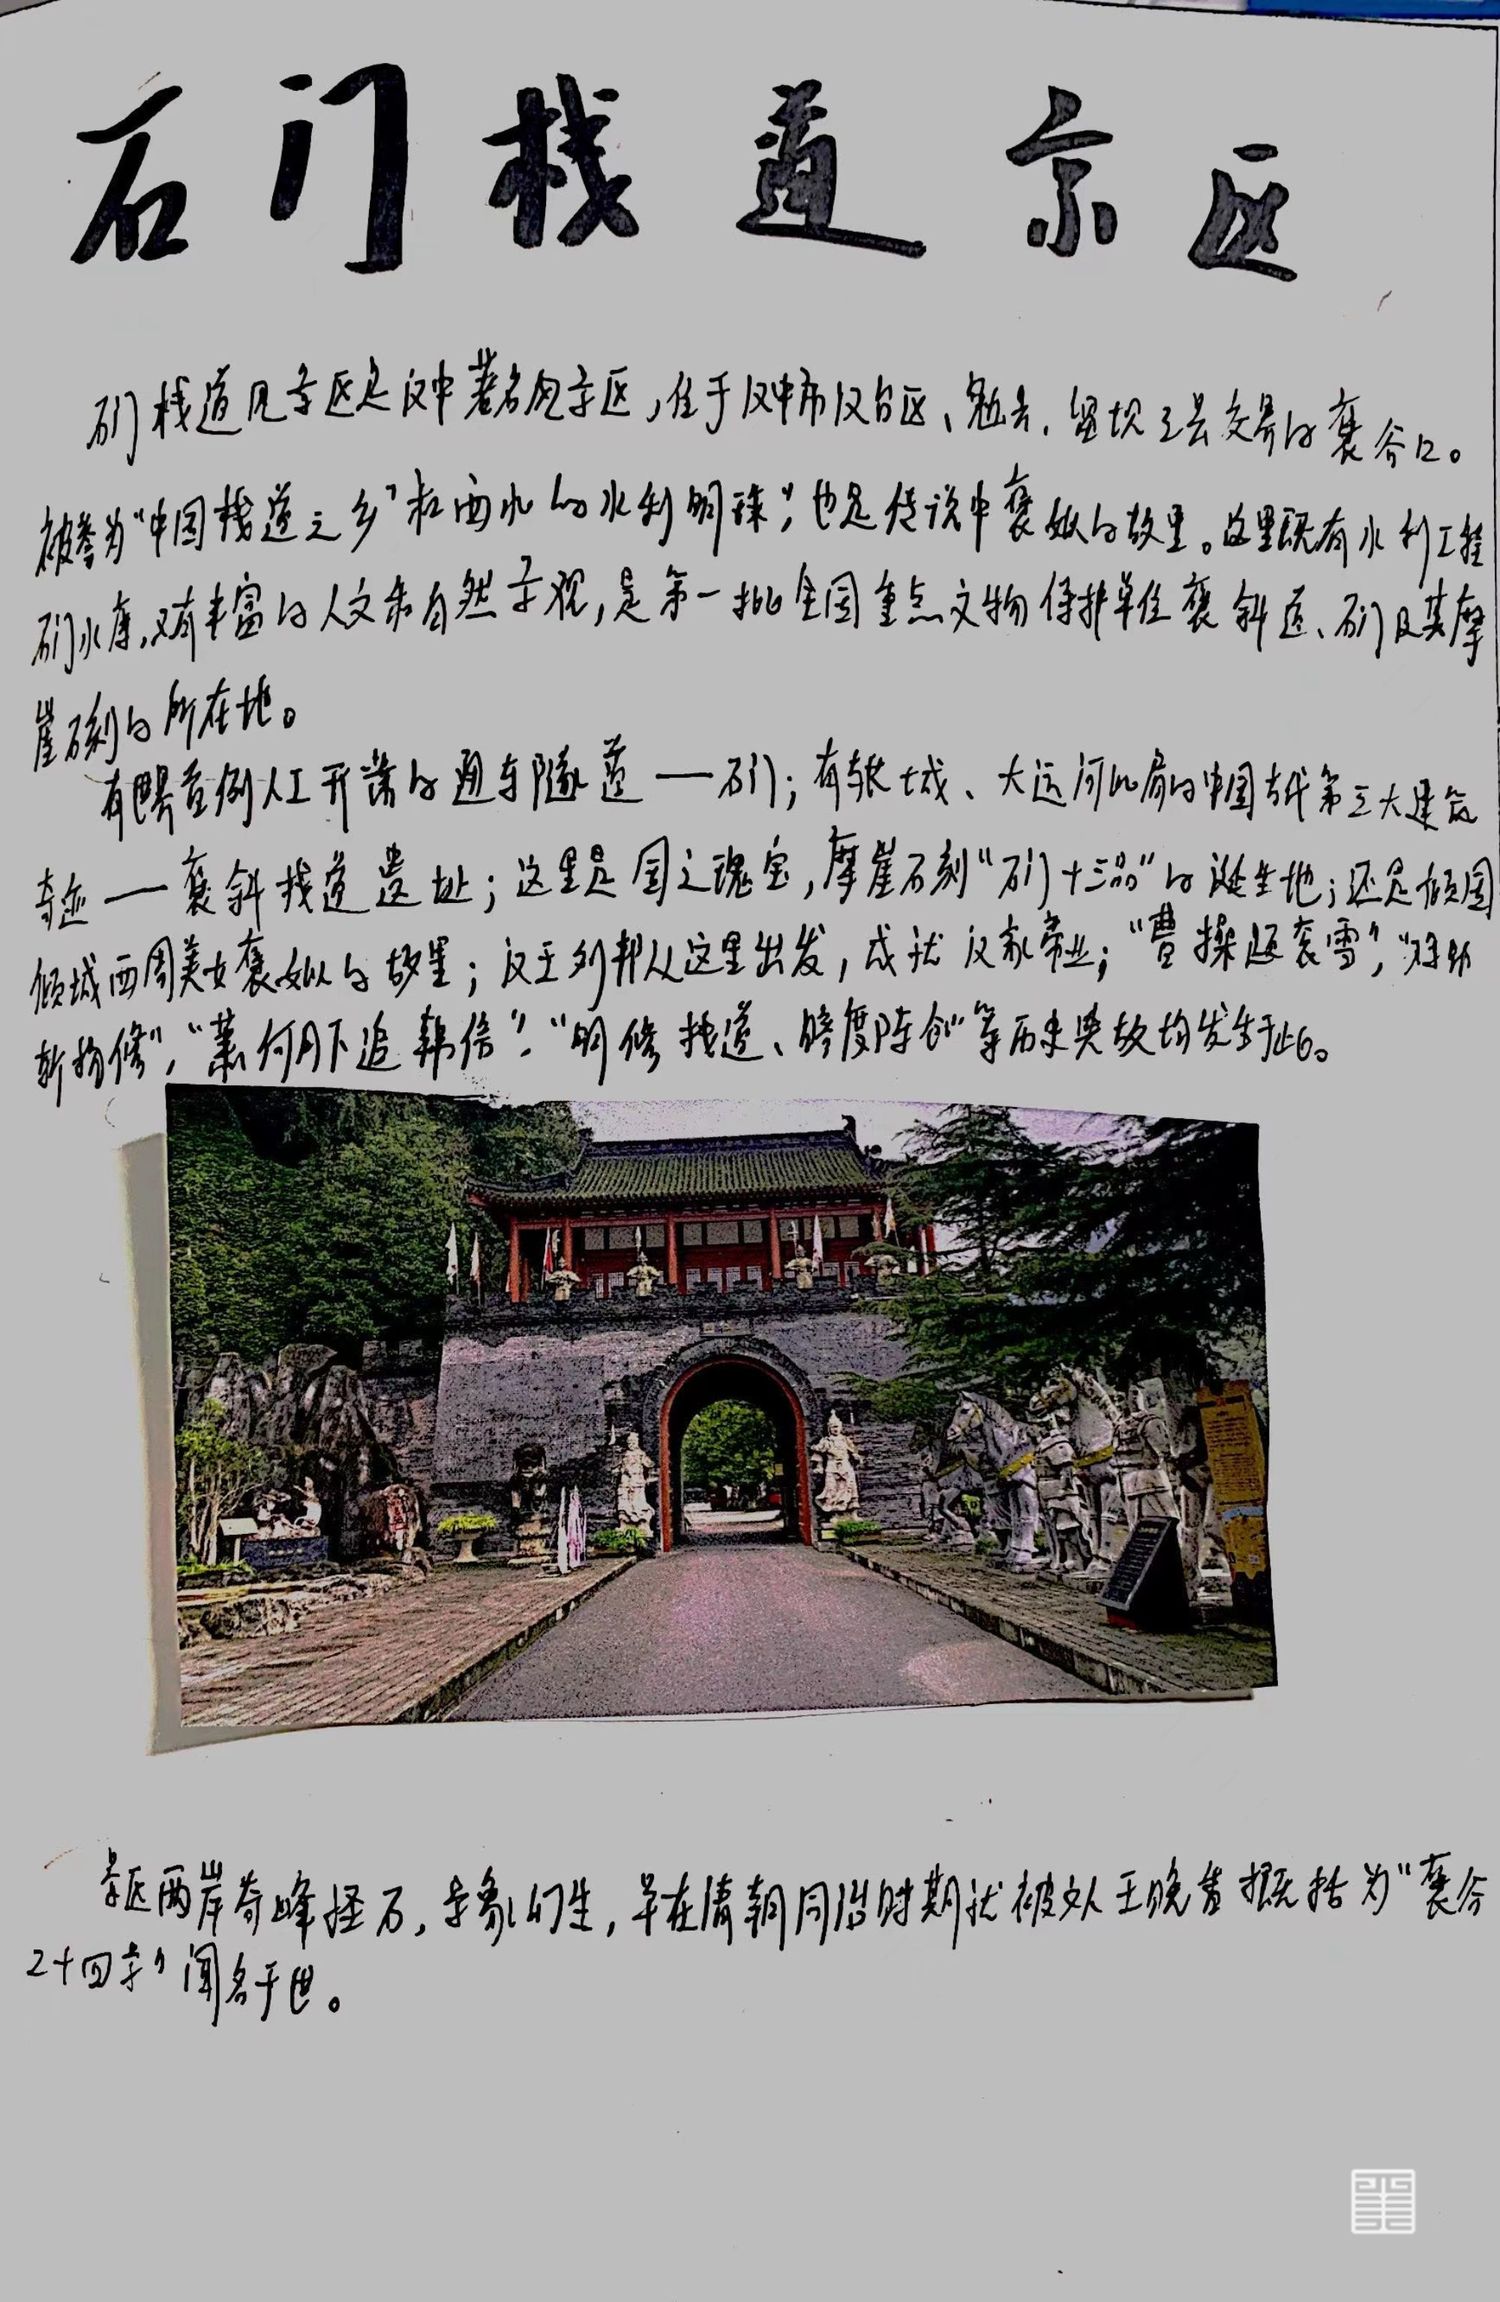 石门栈道景区
石门栈道风景区是汉中著名风景区,位于汉中市汉台区、勉县、留坝三县交界的褒谷口。
被誉为"中国栈道之乡"和西北的水利明珠",也是传说中褒姒的故里。这里既有水利工程
石门水库,又有丰富的人文和自然景观,是第一批全国重点文物保护单位褒斜道、石门及其摩
崖石刻的所在地。
有世界首例人工开凿的通车隧道——石门;有与长城、大运河比肩的中国古代第三大建筑
奇迹——褒斜栈道遗址;这里是国之瑰宝,摩崖石刻"石门十三品"的诞生地;还是倾国
倾城西周美女褒姒的故里;汉王刘邦从这里出发,成就汉家帝业;"曹操题衮雪",
"萧何月下追韩信"、"明修栈道、暗度陈仓"等历史典故均发生于此。
景区两岸奇峰怪石,景象幻生,早在清朝同治时期就被文人王晚香概括为"褒谷
二十四景"闻名于世。